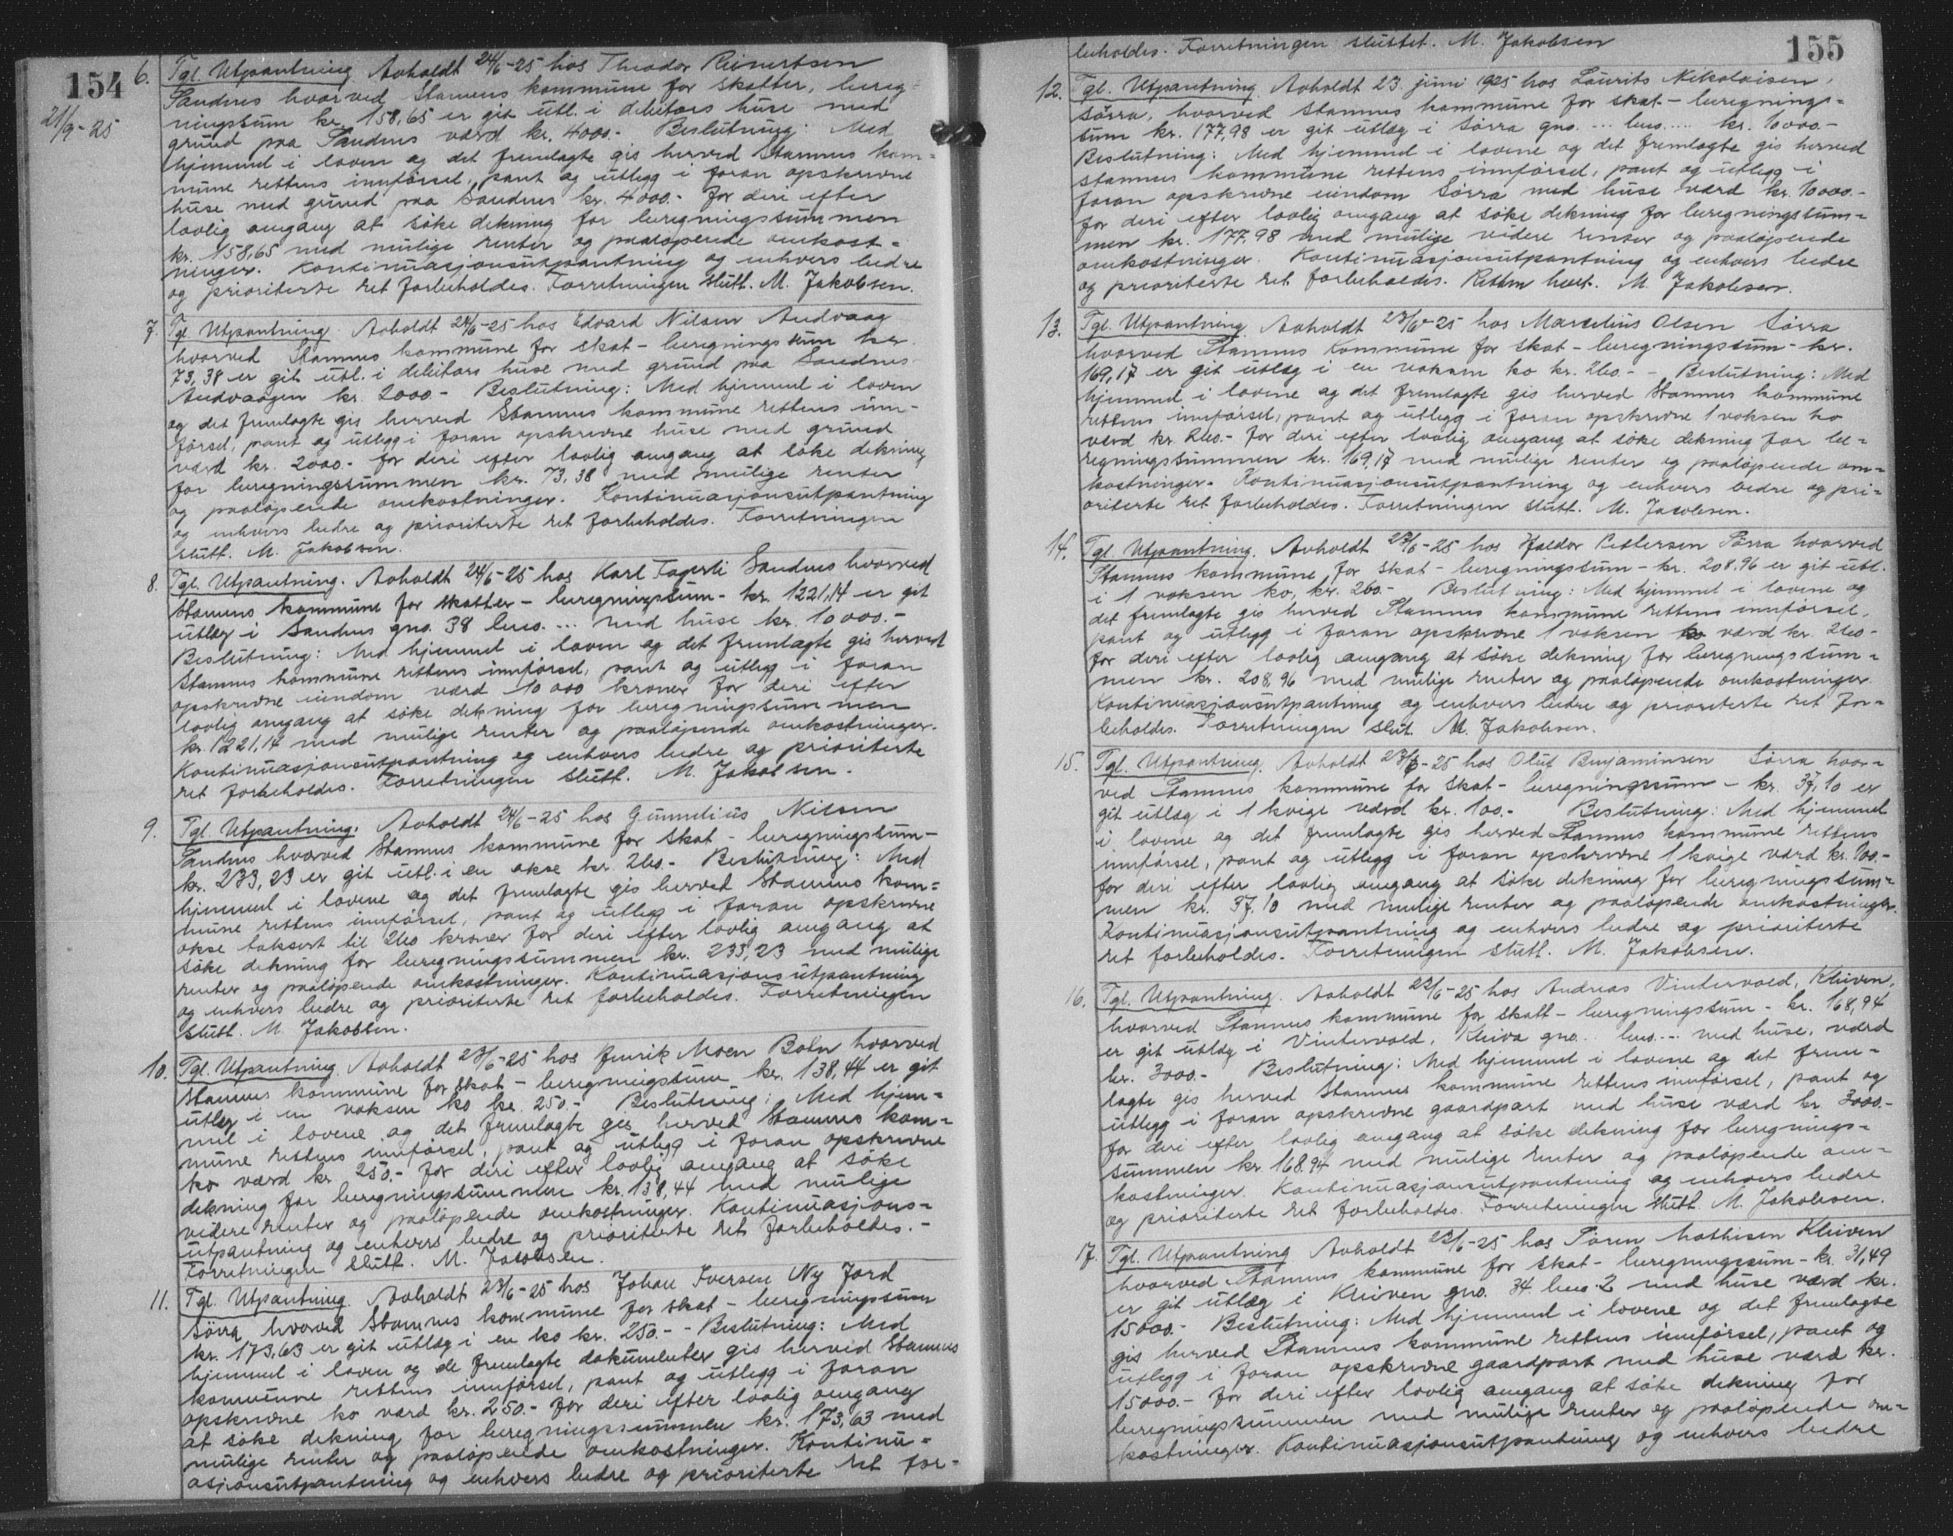 154
21/9-25
6. Tgl. Utpantning Avholdt 24/6-25 hos Theodor Reinertsen
Sandnes hvorved Stamnes kommune for skatter, bereg-
ningssum kr. 158,65 er git utl. i debitors huse med
grund paa Sandnes værd kr. 4000.- Beslutning: Med
hjemmel i loven og det fremlagte gis herved Stamnes kom-
mune rettens innførsel, pant og utlegg i foran opskrevne
huse med grund paa Sandnes kr. 4000.- for deri efter
lovlig omgang at søke dekning for beregningssummen
kr. 158,65 med mulige renter og paaløpende omkost-
ninger. Kontinuasjonsutpantning og enhvers bedre
og prioriterte ret forbeholdes. Forretningen slutt. M. Jakobsen.
7. Tgl. Utpantning. Avholdt 24/6-25 hos Edvard Nilsen Andvaag
hvorved Stamnes kommune for skat - beregningssum kr.
73,38 er git utl. i debitors huse med grund paa Sandnes
Andvaagen kr. 2000.- Beslutning: Med hjemmel i loven
og det fremlagte gis herved Stamnes kommune rettens inn-
førsel, pant og utlegg i foran opskrevne huse med grund
værd kr. 2000.- for deri efter lovlig omgang at søke dekning
for beregningssummen kr. 73,38 med mulige renter
og paaløpende omkostninger. Kontinuasjonsutpantning
og enhvers bedre og prioriterte ret forbeholdes. Forretningen
slutt. M. Jakobsen.
8. Tgl. Utpantning. Avholdt 24/6-25 hos Karl Fagerli Sandnes hvorved
Stamnes kommune for skatter - beregningssum - kr. 1221,14 er git
utlæg i Sandnes gno. 38 bno. ... med huse kr. 10000.-
Beslutning: Med hjemmel i loven og det fremlagte gis herved
Stamnes kommune rettens innførsel, pant og utlegg i foran
opskrevne eiendom værd 10000 kroner for deri efter
lovlig omgang at søke dekning for beregningssummen
kr. 1221,14 med mulige renter og paaløpende omkostninger.
Kontinuasjonsutpantning og enhvers bedre og prioriterte
ret forbeholdes. Forretningen slutt. M. Jakobsen.
9. Tgl. Utpantning. Avholdt 24/6-25 hos Gunnelius Nilsen
Sandnes hvorved Stamnes kommune for skat - beregningssum -
kr. 233,23 er git utl. i en okse kr. 260.- Beslutning: Med
hjemmel i lovene og det fremlagte gis herved Stamnes kom-
mune rettens innførsel, pant og utlegg i foran opskrevne
okse taksert til 260 kroner for deri efter lovlig omgang at
søke dekning for beregningssummen kr. 233,23 med mulige
renter og paaløpende omkostninger. Kontinuasjonsutpantning
og enhvers bedre og prioriterte ret forbeholdes. Forretningen
slutt. M. Jakobsen.
10. Tgl. Utpantning. Avholdt 23/6-25 hos Jenrik Moen Boln hvorved
Stamnes kommune for skat - beregningssum kr. 138,44 er git
utlæg i en voksen ko kr. 250.- Beslutning: Med hjem-
mel i lovene og det fremlagte ges herved Stamnes kom-
mune rettens innførsel, pant og utlegg i foran opskrevne
ko værd kr. 250.- for deri efter lovlig omgang at søke
dekning for beregningssummen kr. 138,44 med mulige
videre renter og paaløpende omkostninger. Kontinuasjons-
utpantning og enhvers bedre og prioriterte ret forbeholdes.-
Forretningen slutt. M. Jacobsen.
11. Tgl. Utpantning. Avholdt 23/6-25 hos Johan Iversen Ny Jord
Sörra hvorved Stamnes kommune for skat - beregningssum
kr. 173,63 er git utlæg i en ko kr. 250.- - Beslutning: Med
hjemmel i loven og de fremlagte dokumenter gis herved Stamnes
kommune rettens innførsel, pant og utlegg i foran
opskrevne ko værd kr. 250.- for deri efter lovlig omgang
at søke dekning for beregningssummen kr. 173,63 med
mulige renter og paaløpende omkostninger. Kontinu-
asjonsutpantning og enhvers bedre og prioriterte ret for-
155
beholdes. Forretningen sluttet. M. Jakobsen
12. Tgl. Utpantning. Avholdt 23. juni 1925 hos Laurits Nikolaisen,
Sörra, hvorved Stamnes kommune for skat - beregnings-
sum kr. 177,98 er git utlæg i Sörra gno. ... bno. .... kr. 10000.-
Beslutning: Med hjemmel i lovene og det fremlagte gis herved
Stamnes kommune rettens innførsel, pant og utlegg i
foran opskrevne eiendom Sörra med huse værd kr. 10000.-
for deri efter lovlig omgang at søke dekning for beregningssum-
men kr. 177.98 med mulige videre renter og paaløpende
omkostninger. Kontinuasjonsutpantning og enhvers bedre
og prioriterte ret forbeholdes. Retten hevet. M. Jakobsen.
13. Tgl. Utpantning. Avholdt 23/6-25 hos Marselius Olsen Sörra
hvorved Stamnes kommune for skat - beregningssum - kr.
169,17 er git utlæg i en voksen ko kr. 260.- - Beslutning: Med
hjemmel i lovene og det fremlagte gis herved Stamnes kommune
rettens innførsel, pant og utlegg i foran opskrevne 1 voksen ko
værd kr. 260.- for deri efter lovlig omgang at søke dekning for be-
regningssummen kr. 169,17 med mulige renter og paaløpende om-
kostninger. Kontinuasjonsutpantning og enhvers bedre og pri-
oriterte ret forbeholdes. Forretningen slutt. M. Jacobsen.
14. Tgl. Utpantning. Avholdt 23/6-25 hos Haldor Pettersen Sörra hvorved
Stamnes kommune for skat - beregningssum - kr. 208.96 er git utl.
i 1 voksen ko, kr. 260.- Beslutning: Med hjemmel i lovene og
det fremlagte gis herved Stamnes kommune rettens innførsel,
pant og utlegg i foran opskrevne 1 voksen ko værd kr. 260.-
for deri efter lovlig omgang at søke dekning for beregningssum-
men kr. 208.96 med mulige renter og paaløpende omkostninger.
Kontinuasjonsutpantning og enhvers bedre og prioriterte ret for-
beholdes. Forretningen slut. M. Jakobsen.
15. Tgl. Utpantning. Avholdt 23/6-25 hos Oluf Benjaminsen Sörra hvor-
ved Stamnes kommune for skat - beregningssum - kr. 37,10 er
git utlæg i 1 kvige værd kr. 100.- Beslutning: Med hjemmel
i lovene og det fremlagte ges herved Stamnes kommune rettens
innførsel, pant og utlegg i foran opskrevne 1 kvige værd kr. 100.-
for deri efter lovlig omgang at søke dekning for beregningssum-
men kr. 37.10 med mulige renter og paaløpende omkostninger.
Kontinuasjonsutpantning og enhvers bedre og prioriterte
ret forbeholdes. Forretningen slutt. M. Jakobsen.
16. Tgl. Utpantning. Avholdt 22/6-25 hos Andreas Vintervold, Kleiven,
hvorved Stamnes kommune for skatt - beregningssum - kr. 168,94
er git utlæg i Vintervold, Kleiva gno. .. bno. ... med huse, værd
kr. 3000.- Beslutning: Med hjemmel i lovene og det frem-
lagte gis herved Stamnes kommune rettens innførsel, pant og
utlegg i foran opskrevne gaardpart med huse værd kr. 3000.-
for deri efter lovlig omgang at søke dekning for beregnings-
summen kr. 168.94 med mulige renter og paaløpende om-
kostninger. Kontinuasjonsutpantning og enhvers bedre
og prioriterte ret forbeholdes. Forretningen slutt. M. Jakobsen.
17. Tgl. Utpantning Avholdt 22/6-25 hos Sören Mathisen Kleiven
hvorved Stamnes kommune for skat - beregningssum - kr. 31,49
er git utlæg i Kleiven gno. 34 bno 2 med huse værd kr.
15000.- Beslutning: Med hjemmel i lovene og det fremlagte
gis herved Stamnes kommune rettens innførsel, pant og
utlegg i foran opskrevne gaardpart med huse værd kr.
15000.- for deri efter lovlig omgang at søke dekning for
beregningssummen med mulige renter og paaløpende om-
kostninger. Kontinuasjonsutpantning og enhvers bedre